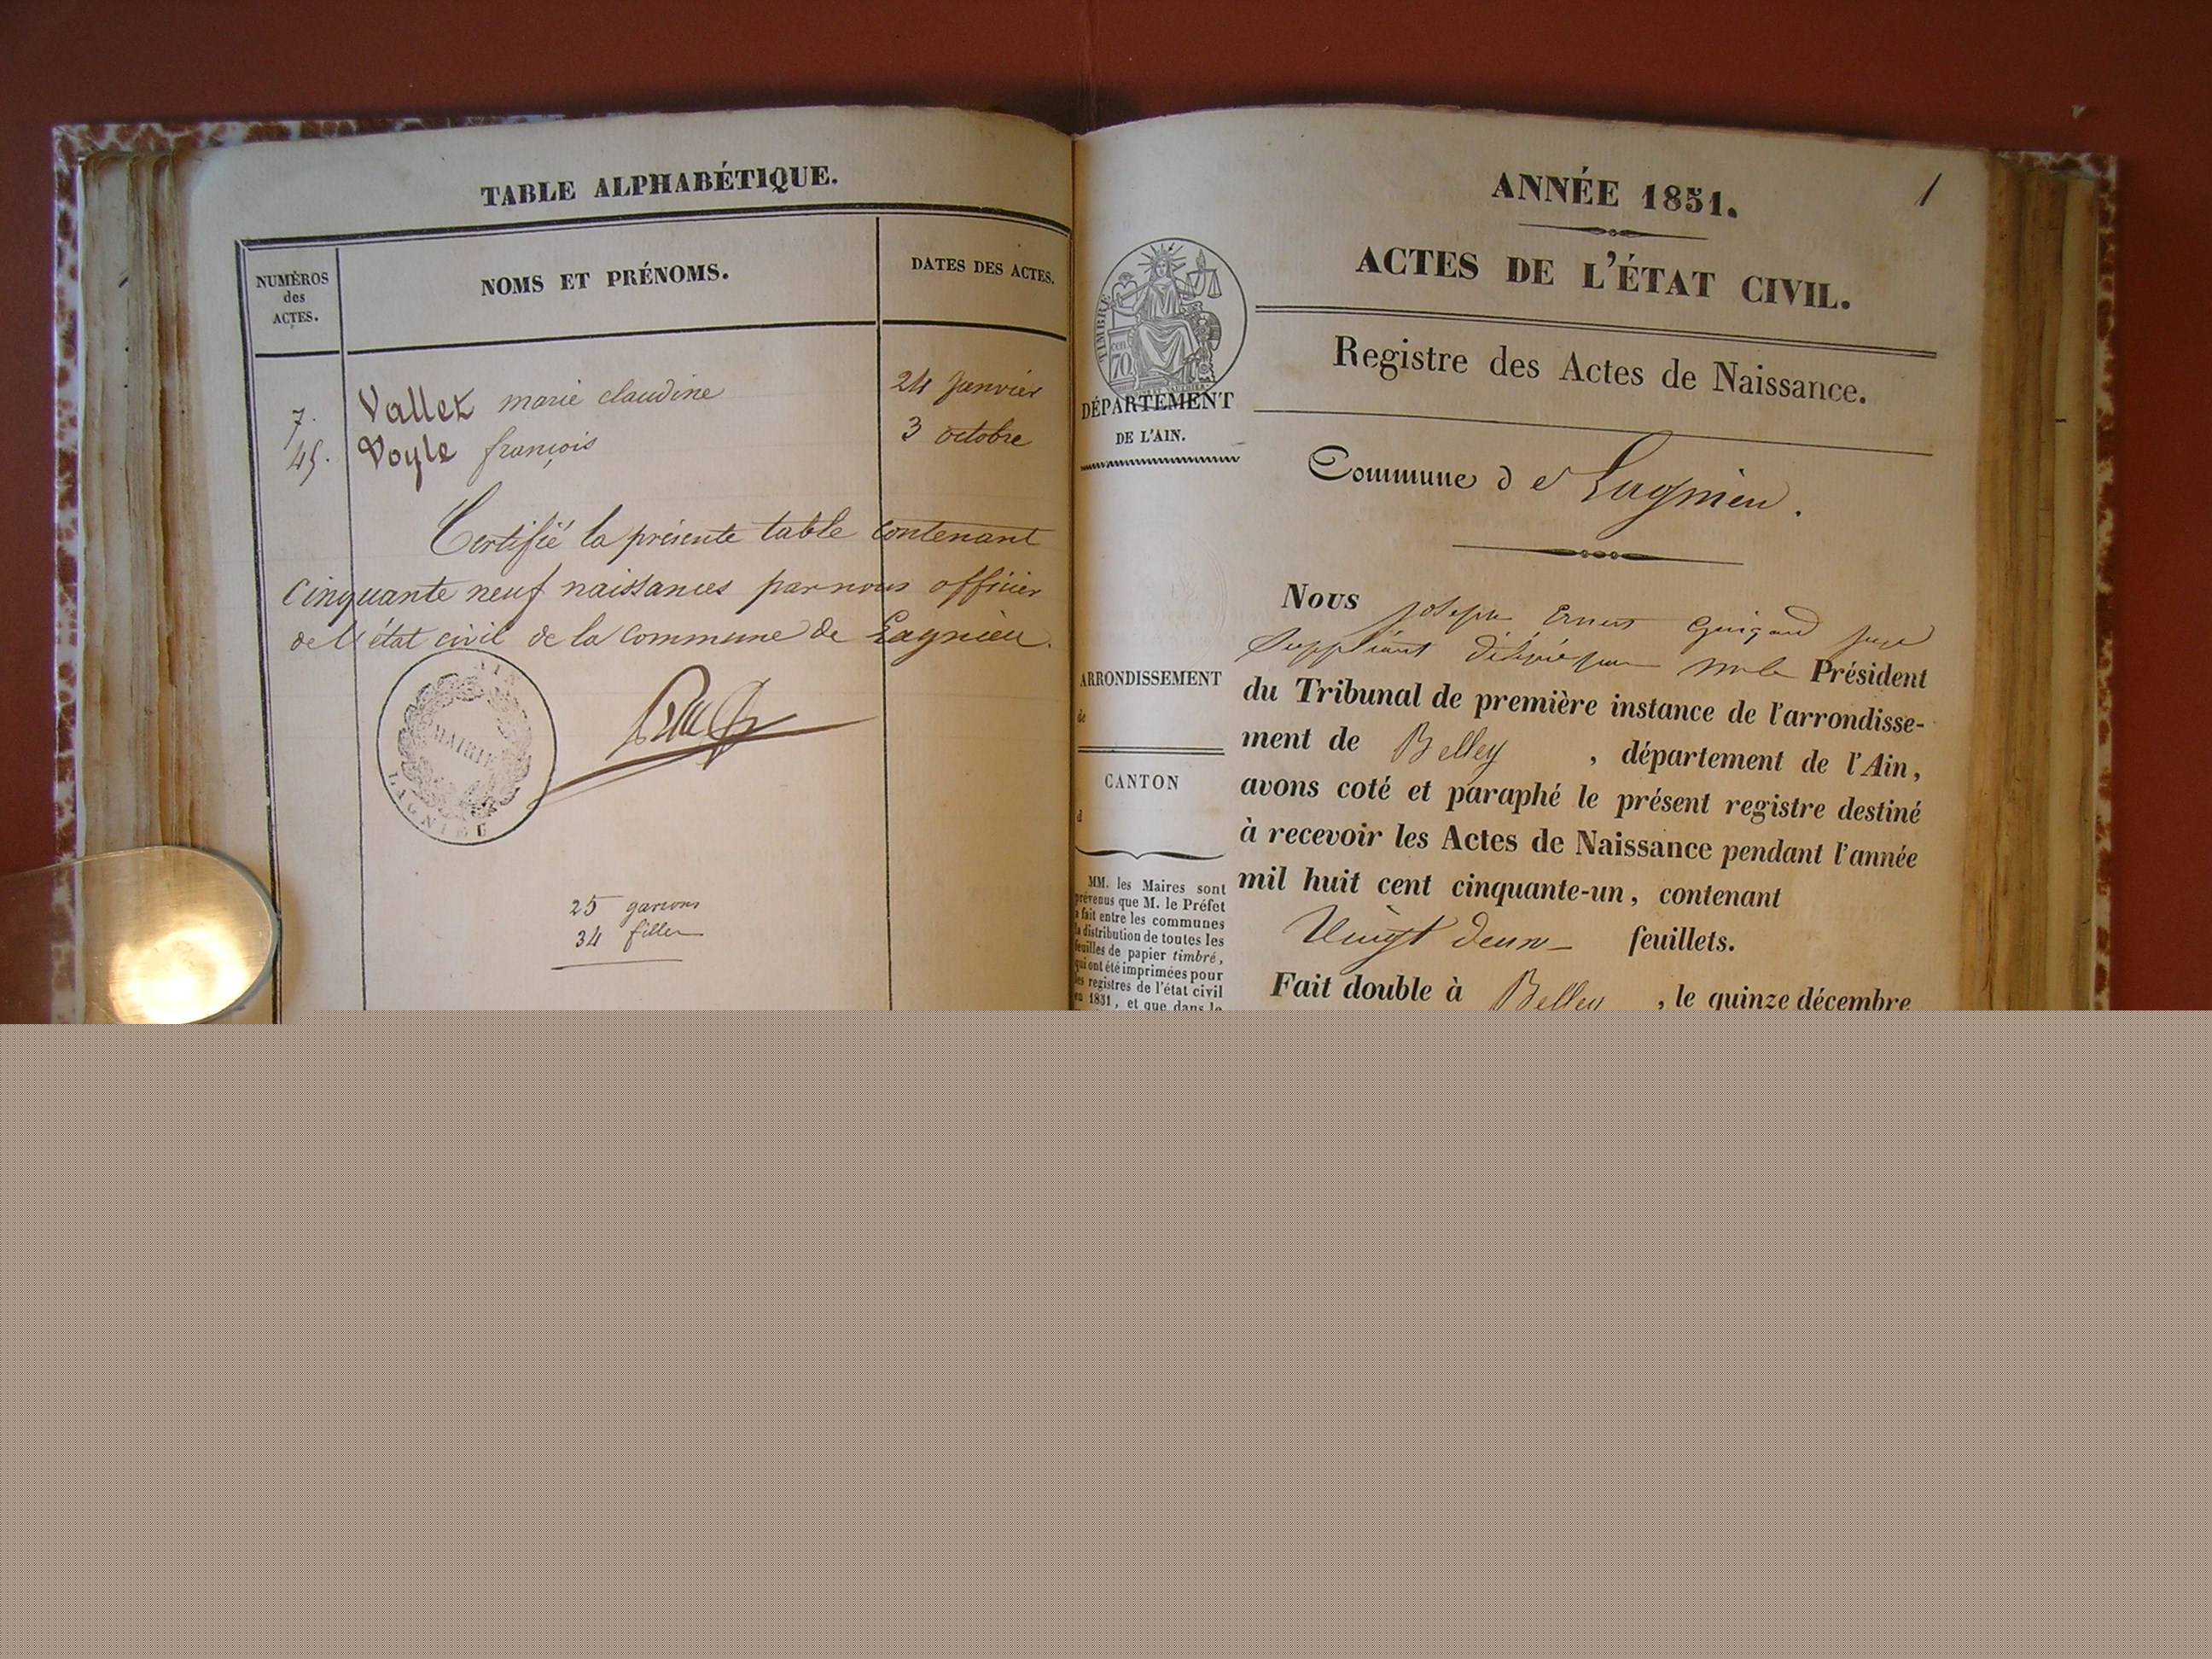 TABLE ALPHABÉTIQUE.
NUMÉROS
des
ACTES.
NOMS ET PRÉNOMS.
DATES DES ACTES.
7. Vallet marie claudine 24 Janvier
45. Voyle françois 3 octobre
Certifié la présente table contenant
Cinquante neuf naissances par nous officier
de l'état civil de la commune de Lagnieu.
AIN
MAIRIE
LAGNIEU
25 garçons
34 filles
1
ANNÉE 1851.
ACTES DE L'ÉTAT CIVIL.
Registre des Actes de Naissance.
TIMBRE
70 cen
DÉPARTEMENT
DE L'AIN.
Commune de Lagnieu.
Nous Joseph Ernest Guigard juge
Suppléant délégué par Mr le Président
du Tribunal de première instance de l'arrondisse-
ment de Belley, département de l'Ain,
avons coté et paraphé le présent registre destiné
à recevoir les Actes de Naissance pendant l'année
mil huit cent cinquante-un, contenant
Vingt deux feuillets.
Fait double à Belley, le quinze décembre
ARRONDISSEMENT
de
CANTON
d
MM. les Maires sont
prévenus que M. le Préfet
a fait entre les communes
la distribution de toutes les
feuilles de papier timbré,
qui ont été imprimées pour
les registres de l'état civil
en 1851, et que dans le